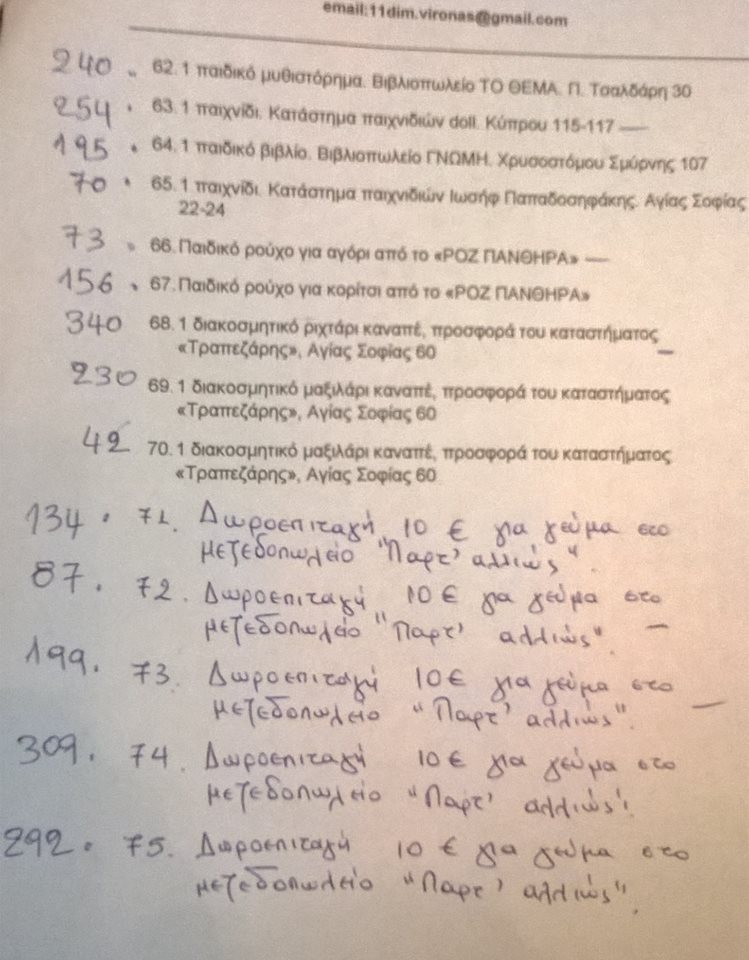 email:11dim.vironas@gmail.com
240 . 62. 1 παιδικό μυθιστόρημα. Βιβλιοπωλείο ΤΟ ΘΕΜΑ. Π. Τσαλδάρη 30
254 . 63. 1 παιχνίδι. Κατάστημα παιχνιδιών doll. Κύπρου 115-117 —
195 . 64. 1 παιδικό βιβλίο. Βιβλιοπωλείο ΓΝΩΜΗ. Χρυσοστόμου Σμύρνης 107
70 . 65. 1 παιχνίδι. Κατάστημα παιχνιδιών Ιωσήφ Παπαδοσηφάκης. Αγίας Σοφίας
22-24
73 . 66. Παιδικό ρούχο για αγόρι από το «ΡΟΖ ΠΑΝΘΗΡΑ» —
156 . 67. Παιδικό ρούχο για κορίτσι από το «ΡΟΖ ΠΑΝΘΗΡΑ»
340 68. 1 διακοσμητικό ριχτάρι καναπέ, προσφορά του καταστήματος
«Τραπεζάρης», Αγίας Σοφίας 60 —
230 69. 1 διακοσμητικό μαξιλάρι καναπέ, προσφορά του καταστήματος
«Τραπεζάρης», Αγίας Σοφίας 60
42 70. 1 διακοσμητικό μαξιλάρι καναπέ, προσφορά του καταστήματος
«Τραπεζάρης», Αγίας Σοφίας 60
134 . 71. Δωροεπιταγή 10 € για γεύμα στο
μεζεδοπωλείο "Παρτ' αλλιώς".
87. 72. Δωροεπιταγή 10 € για γεύμα στο
μεζεδοπωλείο "Παρτ' αλλιώς". —
199. 73. Δωροεπιταγή 10 € για γεύμα στο
μεζεδοπωλείο "Παρτ' αλλιώς". —
309. 74. Δωροεπιταγή 10 € για γεύμα στο
μεζεδοπωλείο "Παρτ' αλλιώς".
292. 75. Δωροεπιταγή 10 € για γεύμα στο
μεζεδοπωλείο "Παρτ' αλλιώς".